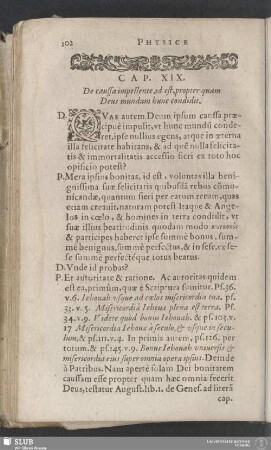 102 PHYSICE
CAP. XIX.
De caussa impellente, id est, propter quam
Deus mundum hunc condidit.
D. QVAE autem Deum ipsum caussa præ-
cipuè impulit, vt hunc mundũ conde-
ret, ipse nullius egens, atque in æterna
illa felicitate habitans, & ad quẽ nulla felicita-
tis & immortalitatis accessio fieri ex toto hoc
opificio potest?
P. Mera ipsius bonitas, id est, voluntas illa beni-
gnissima suæ felicitatis quibusdã rebus cõmu-
nicandæ, quantum fieri per earum rerum, quas
etiam creauit, naturam potest. Itaque & Ange-
los in cœlo, & homines in terra condidit, vt
suæ illius beatitudinis quodam modo
& participes haberet ipse summè bonus, sum-
mè benignus, summè perfectus, & in sese, ex se-
se summè perfectéque totus beatus.
D. Vnde id probas?
P. Et autoritate & ratione. Ac autoritas quidem
est ea, primùm, quæ è Scriptura sumitur. Ps. 36.
v. 6. Iehouah vsque ad cœlos misericordia tua. ps.
33. v. 5. Misericordiâ Iehouæ plena est terra. Ps.
34. v. 9. Videte quàd bonus Iehouah. & ps. 103. v.
17 Misericordia Iehouæ à seculo, & vsque in secu-
lum, & ps. 111. v. 4. In primis autem, ps. 136. per
totum. & ps. 145. v. 9. Bonus Iehouah vniuersis &
misericordia eius super omnia opera ipsius. Deinde
à Patribus. Nam apertè solam Dei bonitatem
caussam esse propter quam hæc omnia fecerit
Deus, testatur August. lib. 1. de Genes. ad literã
cap.
SLUB